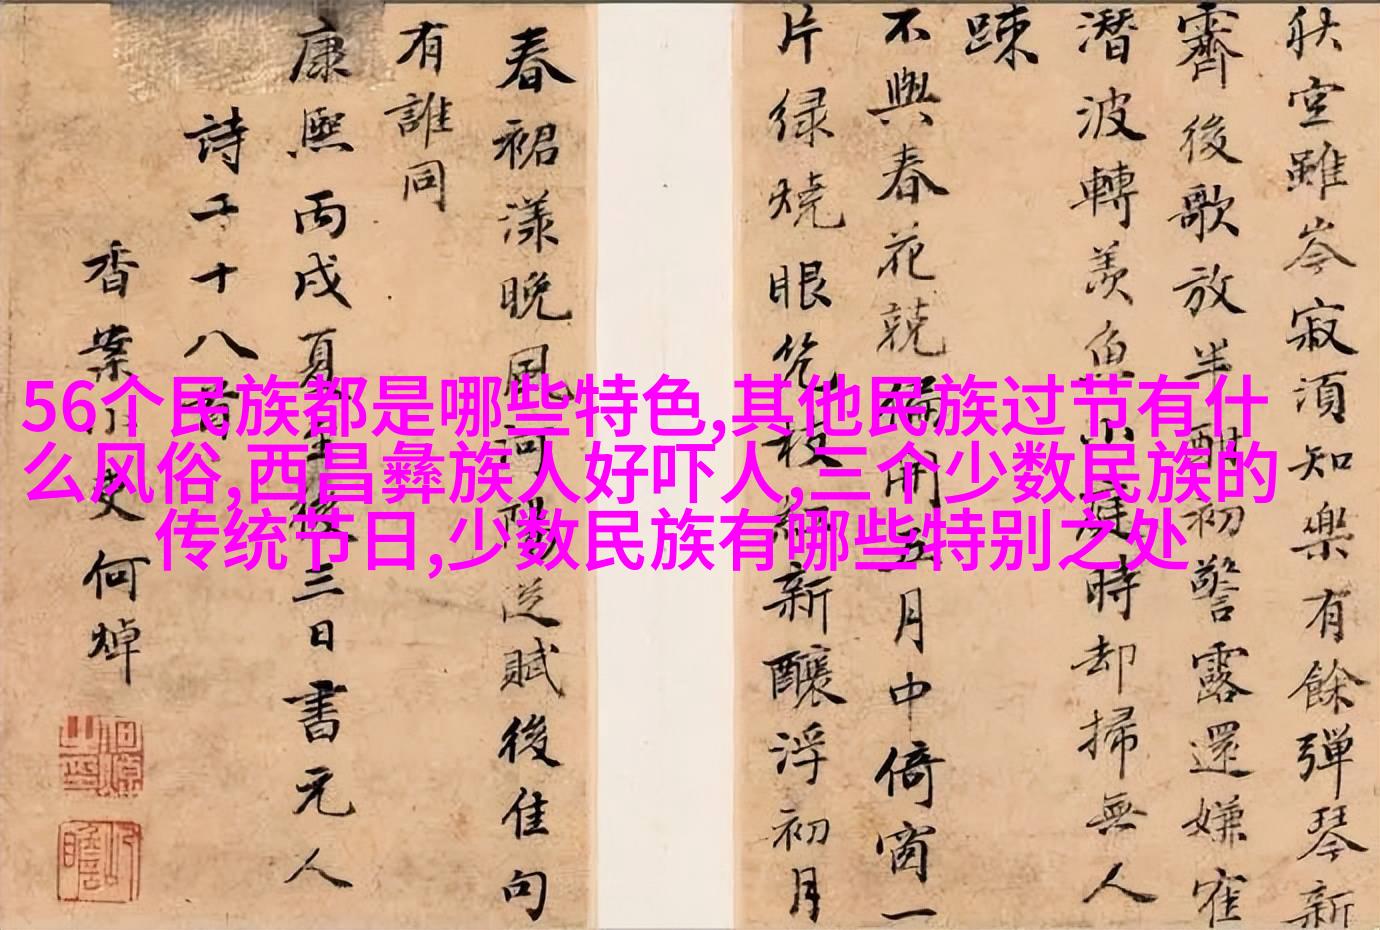 56个民族都是哪些特色,其他民族过节有什
么风俗,西昌彝族人好吓人,三个少数民族的
传统节日,少数民族有哪些特别之处
秋空雖岑寂須知樂有餘彈琴新
霽後歌放半酣初警露還嫌雀
潛波轉羨魚小庭時却掃無人
踈
不與春花競開五月中倚窗一
片緑燒眼幾枝紅新釀浮初月
春裙漾晚風河陽從賦後佳句
有誰同
康熙丙戌夏至後三日書元人
詩二十八首
香案小吏何焯